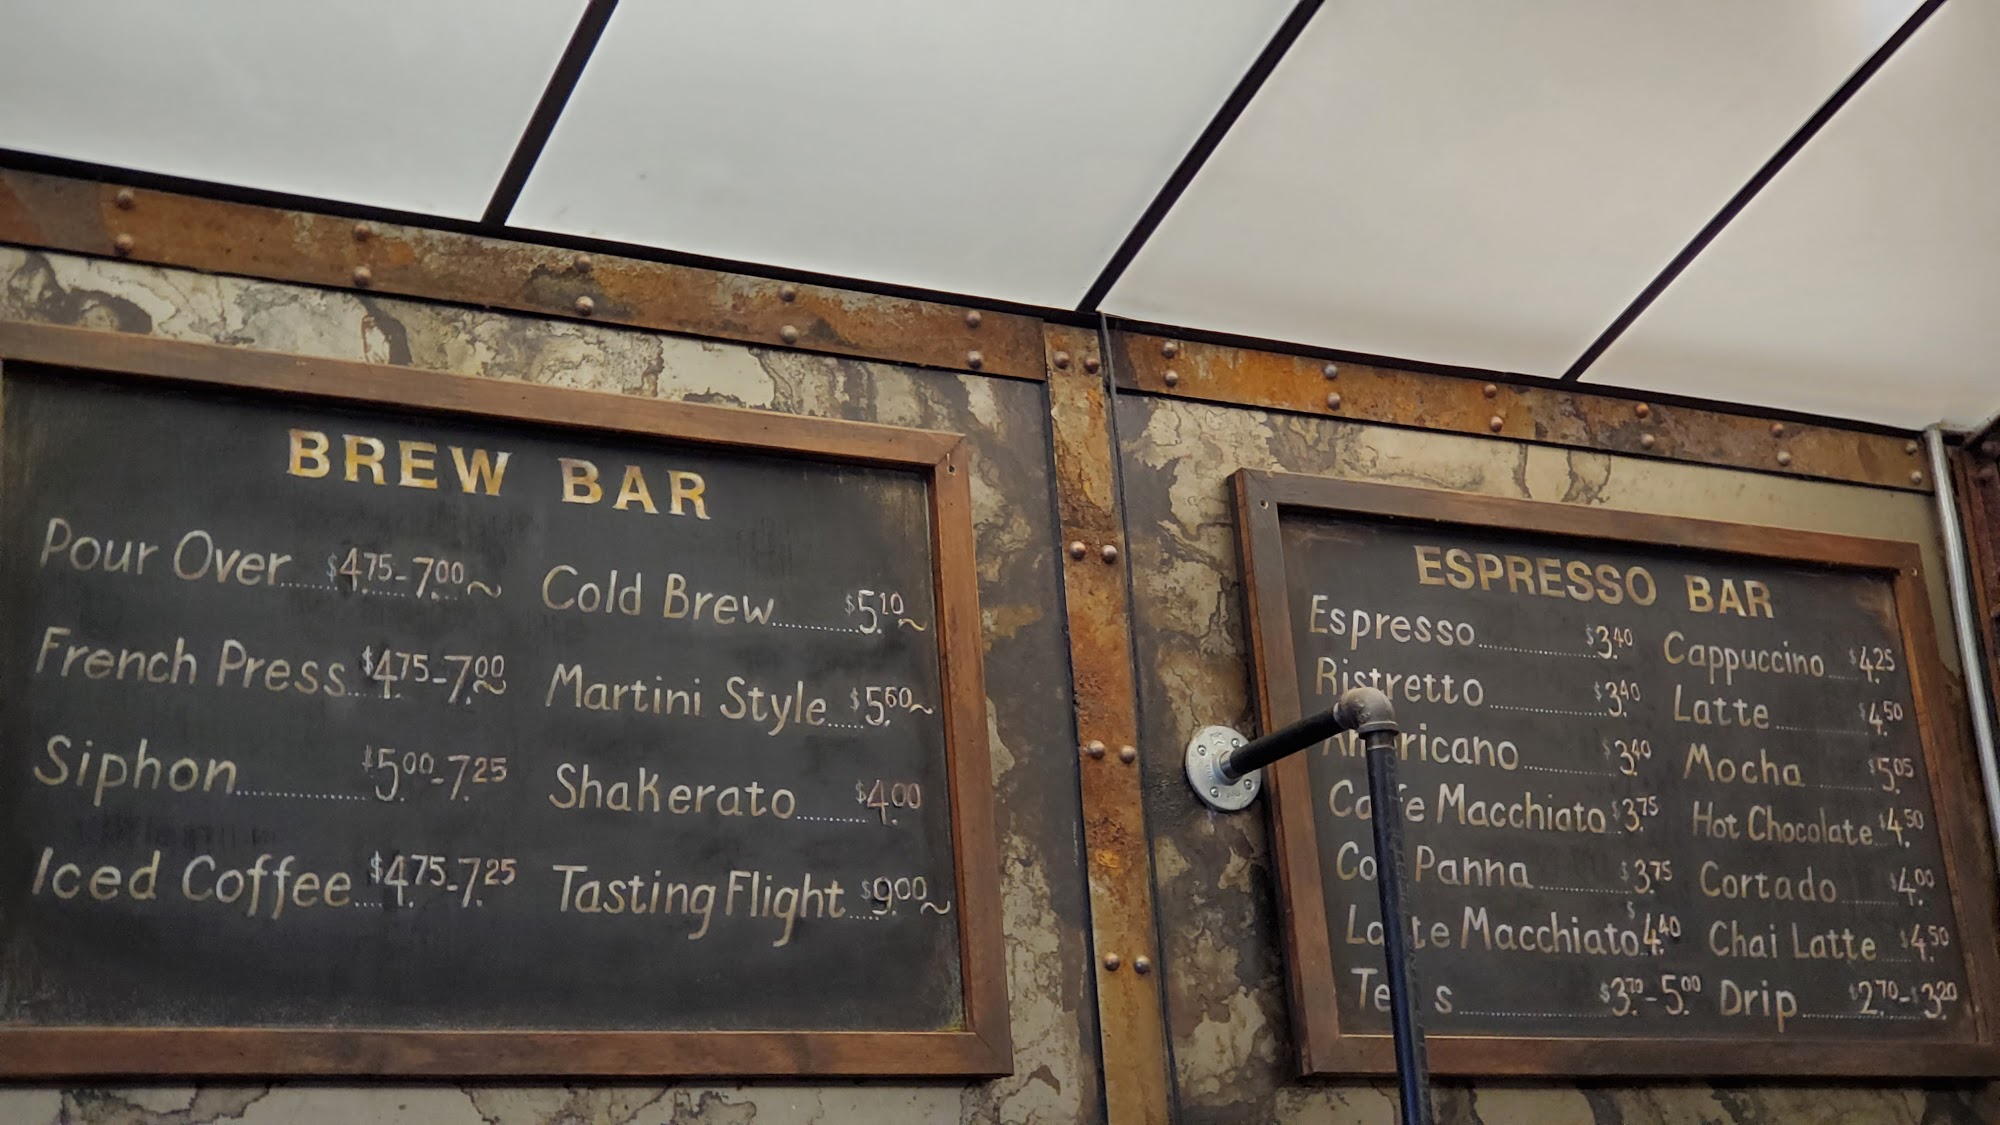 BREW BAR
Pour Over $4.75-7.00~
French Press $4.75-7.00
Siphon $5.00-7.25
Iced Coffee $4.75-7.25
Cold Brew $5.10~
Martini Style $5.60~
Shakerato $4.00
Tasting Flight $9.00~
ESPRESSO BAR
Espresso $3.40
Ristretto $3.40
Americano $3.40
Caffe Macchiato $3.75
Con Panna $3.75
Latte Macchiato $4.40
Teas $3.70-5.00
Cappuccino $4.25
Latte $4.50
Mocha $5.05
Hot Chocolate $4.50
Cortado $4.00
Chai Latte $4.50
Drip $2.70-$3.20